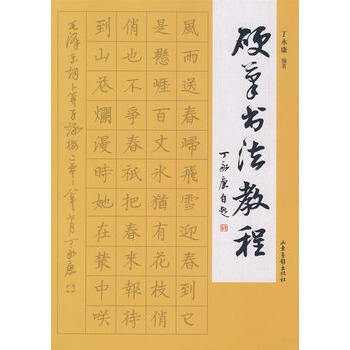 丁永康 编著
硬筆书法教程
丁永康自题
山东画报出版社
風雨送春歸飛雪迎春到已
是懸崖百丈冰猶有花枝俏
俏也不爭春祇把春來報待
到山花爛漫時她在叢中咲
毛泽东词卜算子咏梅 丁永康